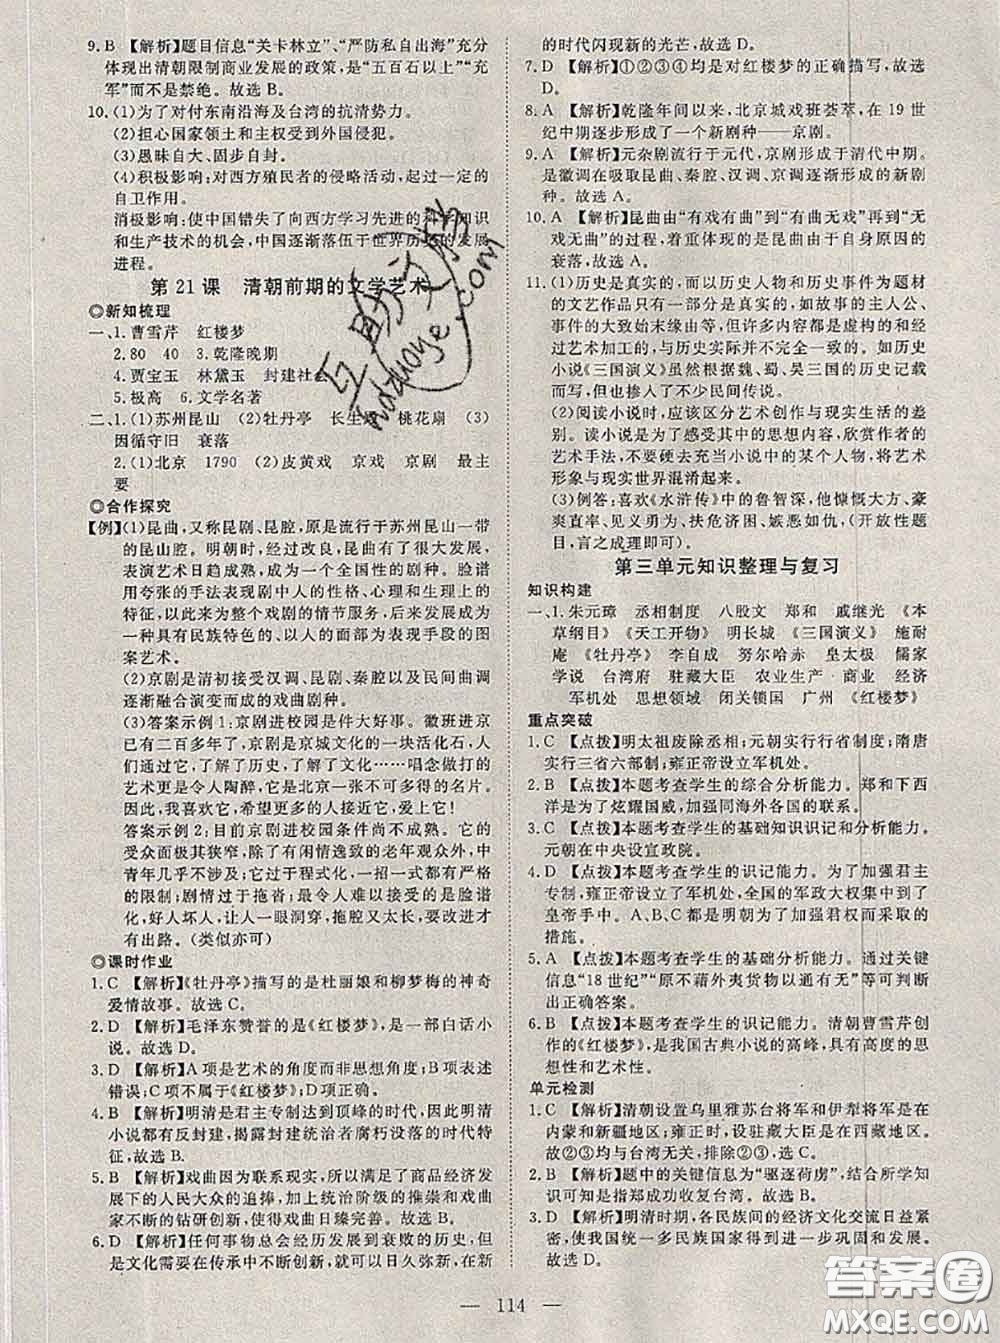 9. B 【解析】题目信息“关卡林立”、“严防私自出海”充分
体现出清朝限制商业发展的政策，是“五百石以上”“充
军”而不是禁绝。故选 B。
10. (1)为了对付东南沿海及台湾的抗清势力。
(2)担心国家领土和主权受到外国侵犯。
(3)愚昧自大、固步自封。
(4)积极影响：对西方殖民者的侵略活动，起过一定的
自卫作用。
消极影响：使中国错失了向西方学习先进的科学知识
和生产技术的机会，中国逐渐落伍于世界历史的发展
进程。
第 21 课 清朝前期的文学艺术
◎新知梳理
一、1. 曹雪芹 红楼梦
2. 80 40 3. 乾隆晚期
4. 贾宝玉 林黛玉 封建社会
5. 极高 6. 文学名著
二、1. (1)苏州昆山 (2)牡丹亭 长生殿 桃花扇 (3)
因循守旧 衰落
2. (1)北京 1790 (2)皮黄戏 京戏 京剧 最主
要
◎合作探究
【例】(1)昆曲，又称昆剧、昆腔，原是流行于苏州昆山一带
的昆山腔。明朝时，经过革新的昆曲有了很大发展，
表演艺术日趋成熟，成为一个全国性的剧种。脸谱
用夸张的手法表现了剧中人的性格、心理和生理上的
特征，以此来为整个戏剧的情节服务，后来逐步发展
成为一种具有民族特色的、以人的面部为表现手段的图
案艺术。
(2)京剧是清初接受汉调、昆剧、秦腔以及民间曲调
逐渐融合演变而成的戏曲剧种。
(3)答案示例 1：京剧进校园是件大好事。徽班进京
已有二百多年了，京剧是京城文化的一块活化石，人们
从中了解了历史，了解了文化……唱念做打的
艺术更是令人陶醉，它是北京一张不可多得的名片。
因此，我喜欢它，希望更多的人接近它，爱上它！
答案示例 2：目前京剧进校园条件尚不成熟。它的
受众面极其狭窄，除了一些有闲情逸致的老年观众，中
青年几乎不涉及；它过于程式化，一招一式都有严格
的限制；剧情过于拖沓；最令人难以忍受的是脸谱化，
好人坏人，让人一眼洞穿，拖腔又太长，要改进才有
有出路。(类似亦可)
◎课时作业
1. C 【解析】《牡丹亭》描写的是杜丽娘和柳梦梅的神奇
爱情故事。故选 C。
2. D 【解析】毛泽东赞誉的是《红楼梦》，是一部白话小
说。故选 D。
3. D 【解析】A 项是艺术的角度而非思想角度；B 项表述
错误；C 项不属于《红楼梦》；D 项正确。
4. B 【解析】明清是君主专制达到顶峰的时代，因此明清
小说都有反封建、揭露封建统治者腐朽没落的时代特
征，故选 B.
5. B 【解析】戏曲因为联系现实，所以在商品经济发
展下的人民大众的追捧，加上统治阶级的推崇和戏曲
家不断的钻研创新，使得戏曲日臻完善。故选 B。
6. D 【解析】任何事物总会经历发展到衰败的历史，但
是文化需要在传承中不断创新，才能日久弥新，在新
的时代闪现新的光芒。故选 D。
7. D 【解析】①②③④均是对红楼梦的正确描写，故选
D。
8. A 【解析】乾隆年间以来，北京城戏班荟萃，在 19 世
纪中期逐步形成了一个新剧种——京剧。
9. A 【解析】元杂剧流行于元代，京剧形成于清代中期。
是徽调在吸取昆曲、秦腔、汉调、京调，逐渐形成的新剧
种。故选 A。
10. A 【解析】昆曲由“有戏有曲”到“有曲无戏”再到“无
戏无曲”的过程，着重体现的是昆曲由于自身原因
的衰落，故选 A。
11. (1)历史是真实的，而以历史人物和历史事件为题材
的文艺作品只有一部分是真实的，如故事的主人公、
事件的大致始末缘由等，但有许多是虚构的和经过
艺术加工的，与历史实际并不完全一致。例如历史
小说《三国演义》虽然根据魏、蜀、吴三国的历史记载
写成，但也采纳了不少民间传说。
(2)阅读小说时，应该区分艺术创作与现实生活的差
别。读小说是为了感受其中的思想内容，欣赏作者的
艺术手法，不要完全陷于小说中的某个人物，将艺术
形象与现实世界混淆起来。
(3)例答：喜欢《水浒传》中的鲁智深，他慷慨大方、豪
爽直率、见义勇为、扶危济困、嫉恶如仇。(开放性题
目，言之成理即可)。
第三单元知识整理与复习
知识构建
一、1. 朱元璋 丞相制度 八股文 郑和 戚继光 《本
草纲目》《天工开物》 明长城 《三国演义》 施耐
庵 《牡丹亭》 李自成 努尔哈赤 皇太极 儒家
学说 台湾府 驻藏大臣 农业生产 商业 经济
军机处 思想领域 闭关锁国 广州 《红楼梦》
重点突破
1. C 【点拨】明太祖废除丞相；元朝实行行省制度；隋唐
实行三省六部制；雍正帝设立军机处。
2. B 【点拨】本题考查学生的综合分析能力。郑和下西
洋是为了炫耀国威，加强同海外各国的联系。
3. C 【点拨】本题考查学生的基础知识识记和分析能力。
元朝在中央设宣政院。
4. D 【点拨】本题考查学生的识记能力。为了加强君主
专制，雍正帝设立了军机处，全国的军政大权集中到了
皇帝手中。A、B、C 都是明朝为加强君权而采取的
措施。
5. A 【点拨】本题考查学生的基础分析能力。通过关键
信息“18 世纪”“原不藉外夷货物以通有无”等可判断
出正确答案。
6. B 【点拨】本题考查学生的识记能力。清朝曹雪芹创
作的《红楼梦》，是我国古典小说的高峰，具有高度的思
想性和艺术性。
单元检测
1. C 【解析】清朝设置乌里雅苏台将军和伊犁将军是在
内蒙和新疆地区；雍正时，设驻藏大臣是在西藏地区。
故②③均与台湾无关，排除②③，选 C。
2. B 【解析】题中的关键信息为“驱逐荷虏”，结合所学知
识可知是指郑成功收复台湾。故选 B。
3. D 【解析】明清时期，各民族间的经济文化交流日益紧
密，使我国统一多民族国家得到了进一步巩固和发展。
故选 D。
— 114 —
答案圈
MXQE.COM